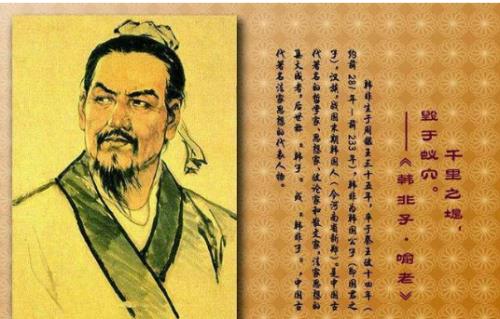 千里之堤，
毁于蚁穴。
——《韩非子·喻老》
韩非生于周赧王三十五年，卒于秦王政十四年（
约前281年－前233年），韩非为韩国公子（即国君之
子），汉族，战国末期韩国人（今河南省新郑）。是中国古
代著名的哲学家、思想家，政论家和散文家，法家思想的
集大成者，后世称“韩子”或“韩非子”，中国古
代著名法家思想的代表人物。